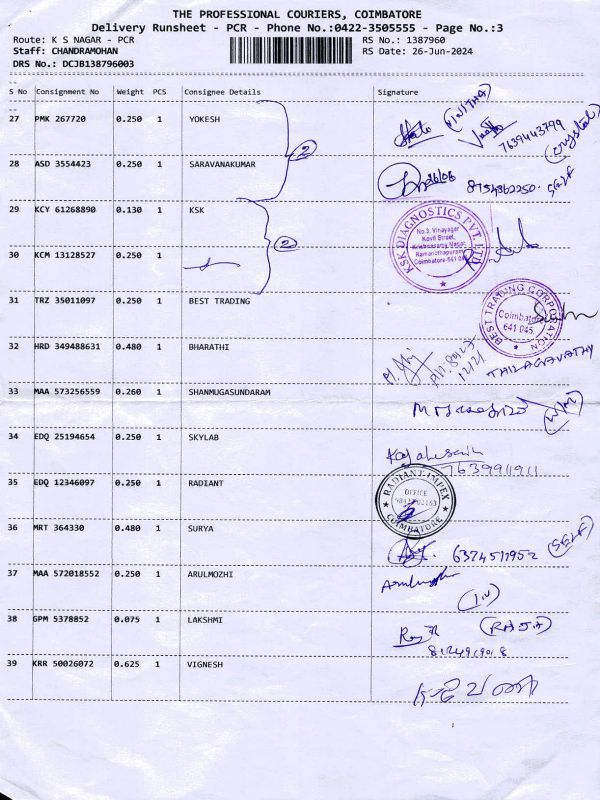 THE PROFESSIONAL COURIERS, COIMBATORE
Delivery Runsheet - PCR - Phone No.:0422-3505555 - Page No.:3
Route: K S NAGAR - PCR RS No.: 1387960
Staff: CHANDRAMOHAN RS Date: 26-Jun-2024
DRS No.: DCJB138796003
S No Consignment No Weight PCS Consignee Details Signature
27 PMK 267720 0.250 1 YOKESH
(VINITHA)
7639443799
(crystal)
2
28 ASD 3554423 0.250 1 SARAVANAKUMAR
26/06 8754362250. SELF
29 KCY 61268890 0.130 1 KSK
2
KSK DIAGNOSTICS PVT. LTD
No.3, Vinayagar
Kovil Street,
Krishnasamy Nagar,
Ramanathapuram,
Coimbatore-641 045
30 KCM 13128527 0.250 1
31 TRZ 35011097 0.250 1 BEST TRADING
BEST TRADING CORPORATION
Coimbatore
641 045
THILAGAVATHY
32 HRD 349488631 0.480 1 BHARATHI
33 MAA 573256559 0.260 1 SHANMUGASUNDARAM
34 EDQ 25194654 0.250 1 SKYLAB
7639911911
35 EDQ 12346097 0.250 1 RADIANT
RADIANT IMPEX
OFFICE
COIMBATORE
36 MRT 364330 0.480 1 SURYA
6374511952 (SELF)
37 MAA 572018552 0.250 1 ARULMOZHI
38 GPM 5378852 0.075 1 LAKSHMI
(RAJA)
39 KRR 50026072 0.625 1 VIGNESH